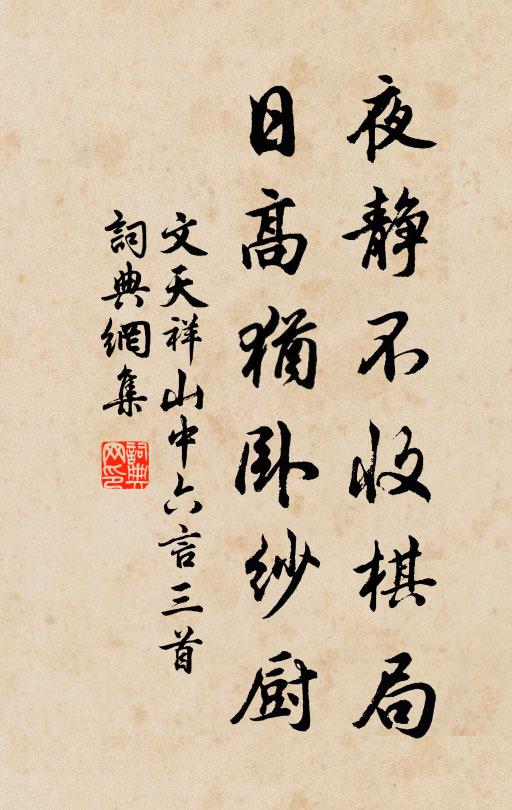 夜静不收棋局
日高猶卧紗厨
文天祥山中六言三首
詞典網集
詞典網印